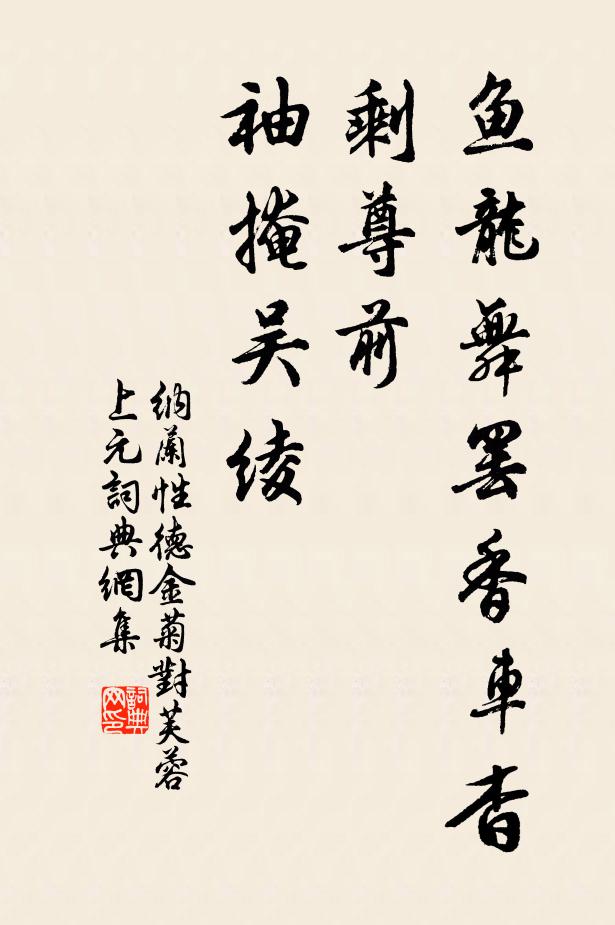 鱼龍舞罢香車杳
剩尊前
袖掩吴绫
纳蘭性德金菊對芙蓉
上元詞典網集
詞典網印